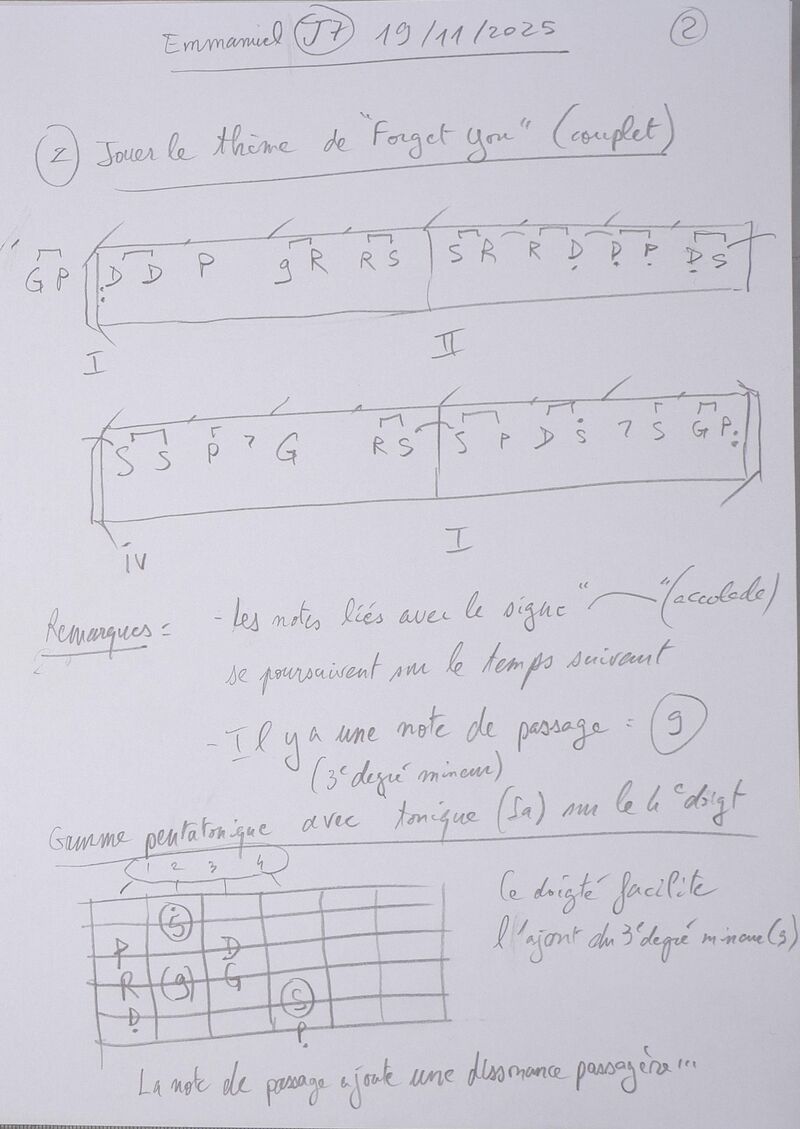 Emmanuel J7 19/11/2025 2
2 Jouer le thème de "Forget You" (couplet)
G P D D P g R R S S R R Ḍ Ḍ P̣ Ḍ S
I II
S S P 7 G R S S P D Ṡ 7 S G P
IV I
Remarques : - Les notes liés avec le signe " " (accolade)
se poursuivent sur le temps suivant
- Il y a une note de passage : g
(3e degré mineur)
Gamme pentatonique avec tonique (Sa) sur le 4e doigt
1 2 3 4
Ṡ
P D
R (g) G
Ḍ S
P̣
Ce doigté facilite
l'ajout du 3e degré mineur (g)
La note de passage ajoute une dissonance passagère...